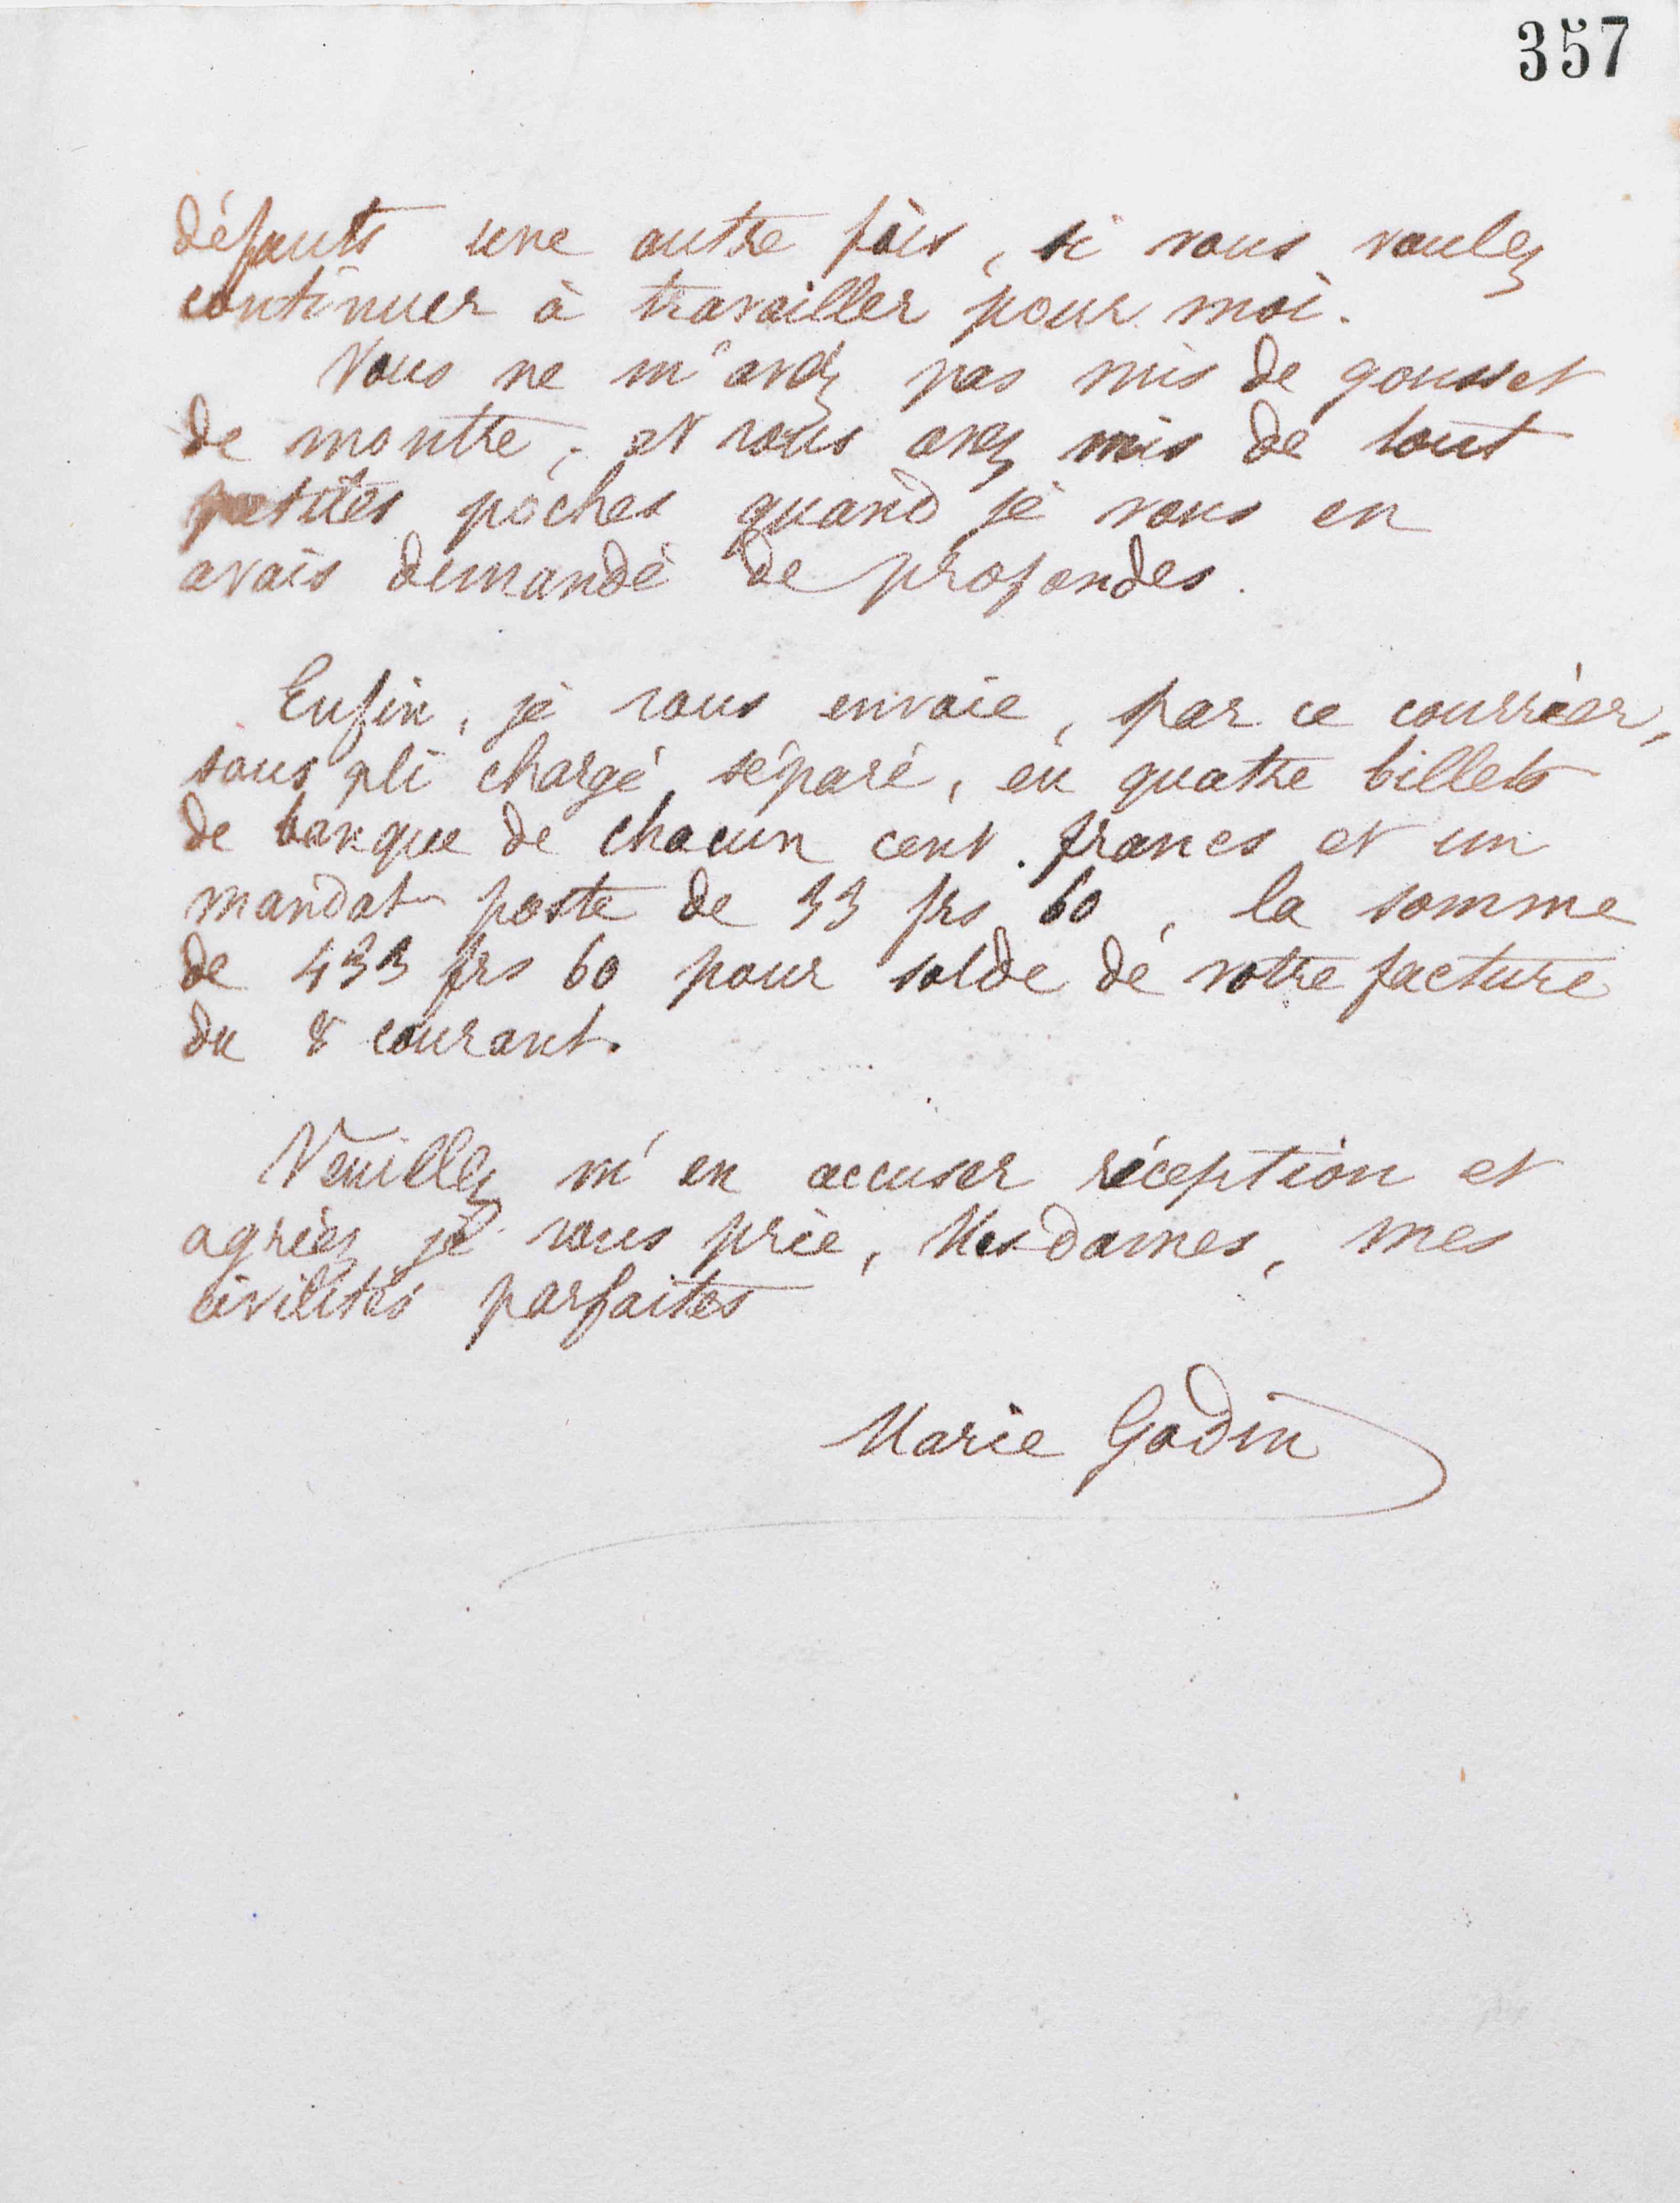 357
défauts une autre fois, si vous voulez
continuer à travailler pour moi.
Vous ne m'avez pas mis de gousset
de montre ; et vous avez mis de tout
petites poches quand je vous en
avais demandé de profondes.
Enfin, je vous envoie, par ce courrier,
sous pli chargé séparé, en quatre billets
de banque de chacun cent francs et un
mandat poste de 33 frs 60, la somme
de 433 frs 60 pour solde de votre facture
du 8 courant.
Veuillez m'en accuser réception et
agréez je vous prie, Mesdames, mes
civilités parfaites
Marie Godin